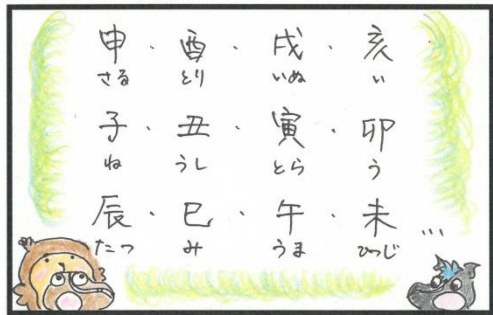 申・酉・戌・亥
さる とり いぬ い
子・丑・寅・卯
ね うし とら う
辰・巳・午・未…
たつ み うま ひつじ